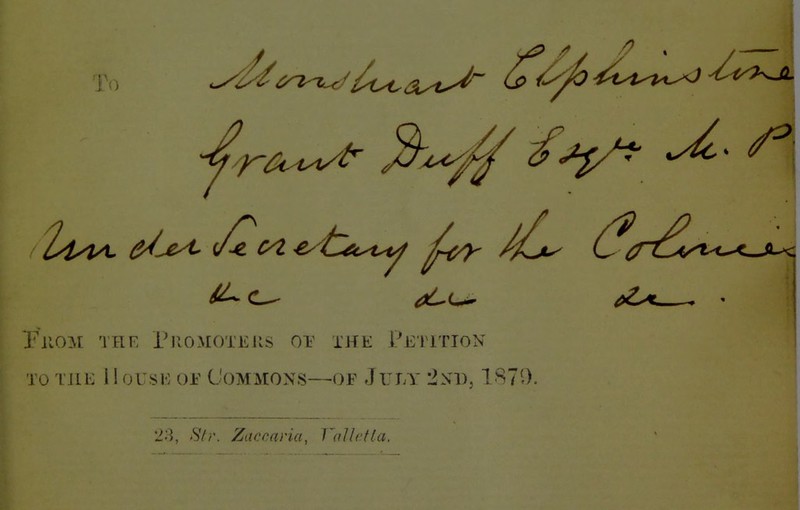 To Monstuart Elphinstone
Grant Duff Esqre. M. P
Under Secretary for the Colonies
&c &c &c.
FROM THE PROMOTERS OF THE PETITION
TO THE HOUSE OF COMMONS—OF JULY 2ND, 1879.
23, Str. Zaccaria, Valletta.